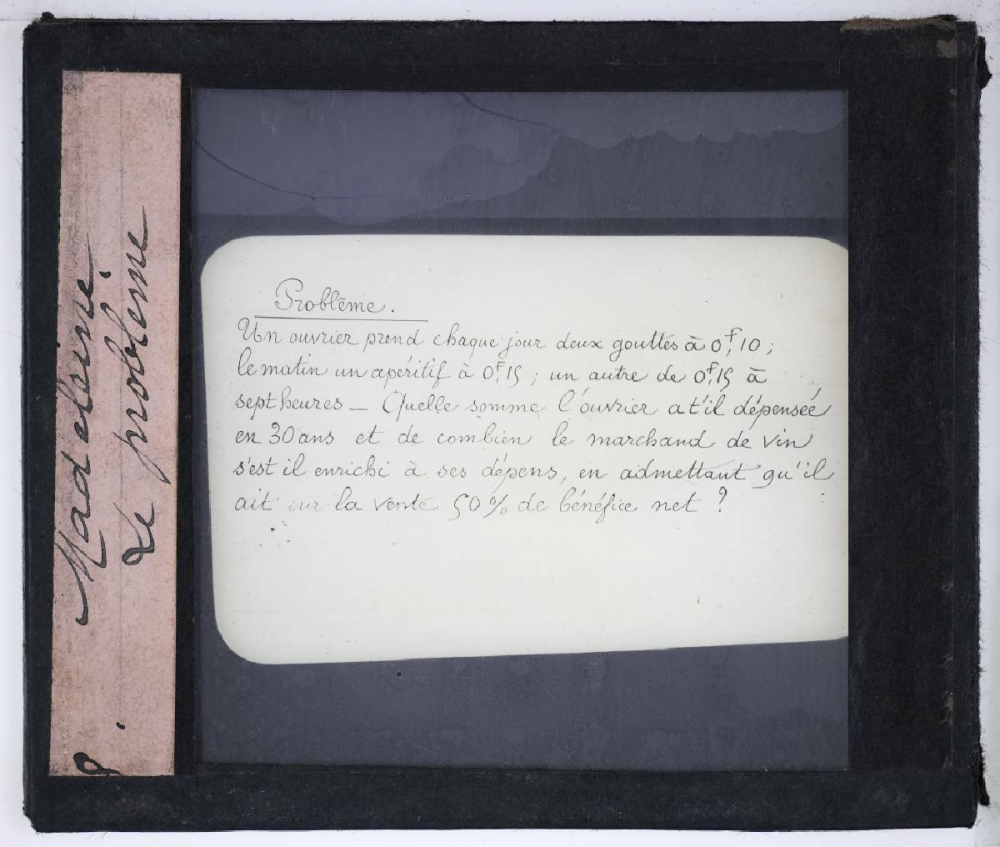 Madeleine.
Le problème
8.
Problème.
Un ouvrier prend chaque jour deux gouttes à 0f,10 ;
le matin un apéritif à 0f,15 ; un autre de 0f,15 à
sept heures _ Quelle somme l'ouvrier at'il dépensée
en 30 ans et de combien le marchand de vin
s'est il enrichi à ses dépens, en admettant qu'il
ait sur la vente 50 % de bénéfice net ?